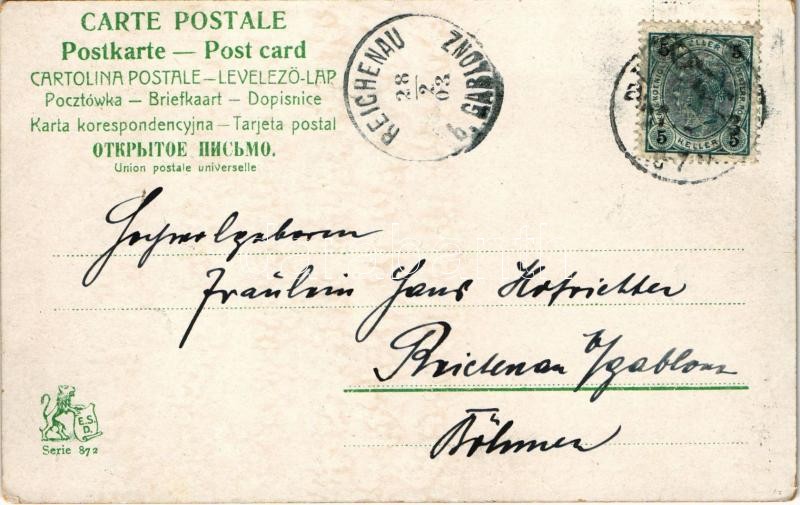 CARTE POSTALE
Postkarte — Post card
CARTOLINA POSTALE — LEVELEZŐ-LAP
Pocztówka — Briefkaart — Dopisnice
Karta korespondencyjna — Tarjeta postal
ОТКРЫТОЕ ПИСЬМО.
Union postale universelle
REICHENAU
b. GABLONZ
28
2
03
5 5
HELLER
5 5
HELLER
Hochwolgeboren
Fräulein Hans Hofrichter
Reichenau b/gablonz
Böhmen
E.S.
D.
Serie 872